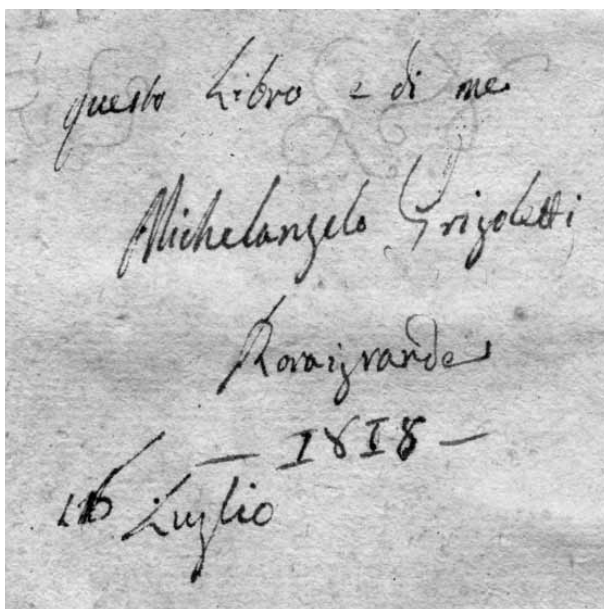 questo Libro e di me
Michelangelo Grigoletti
Roraigrande
— 1818 —
Luglio